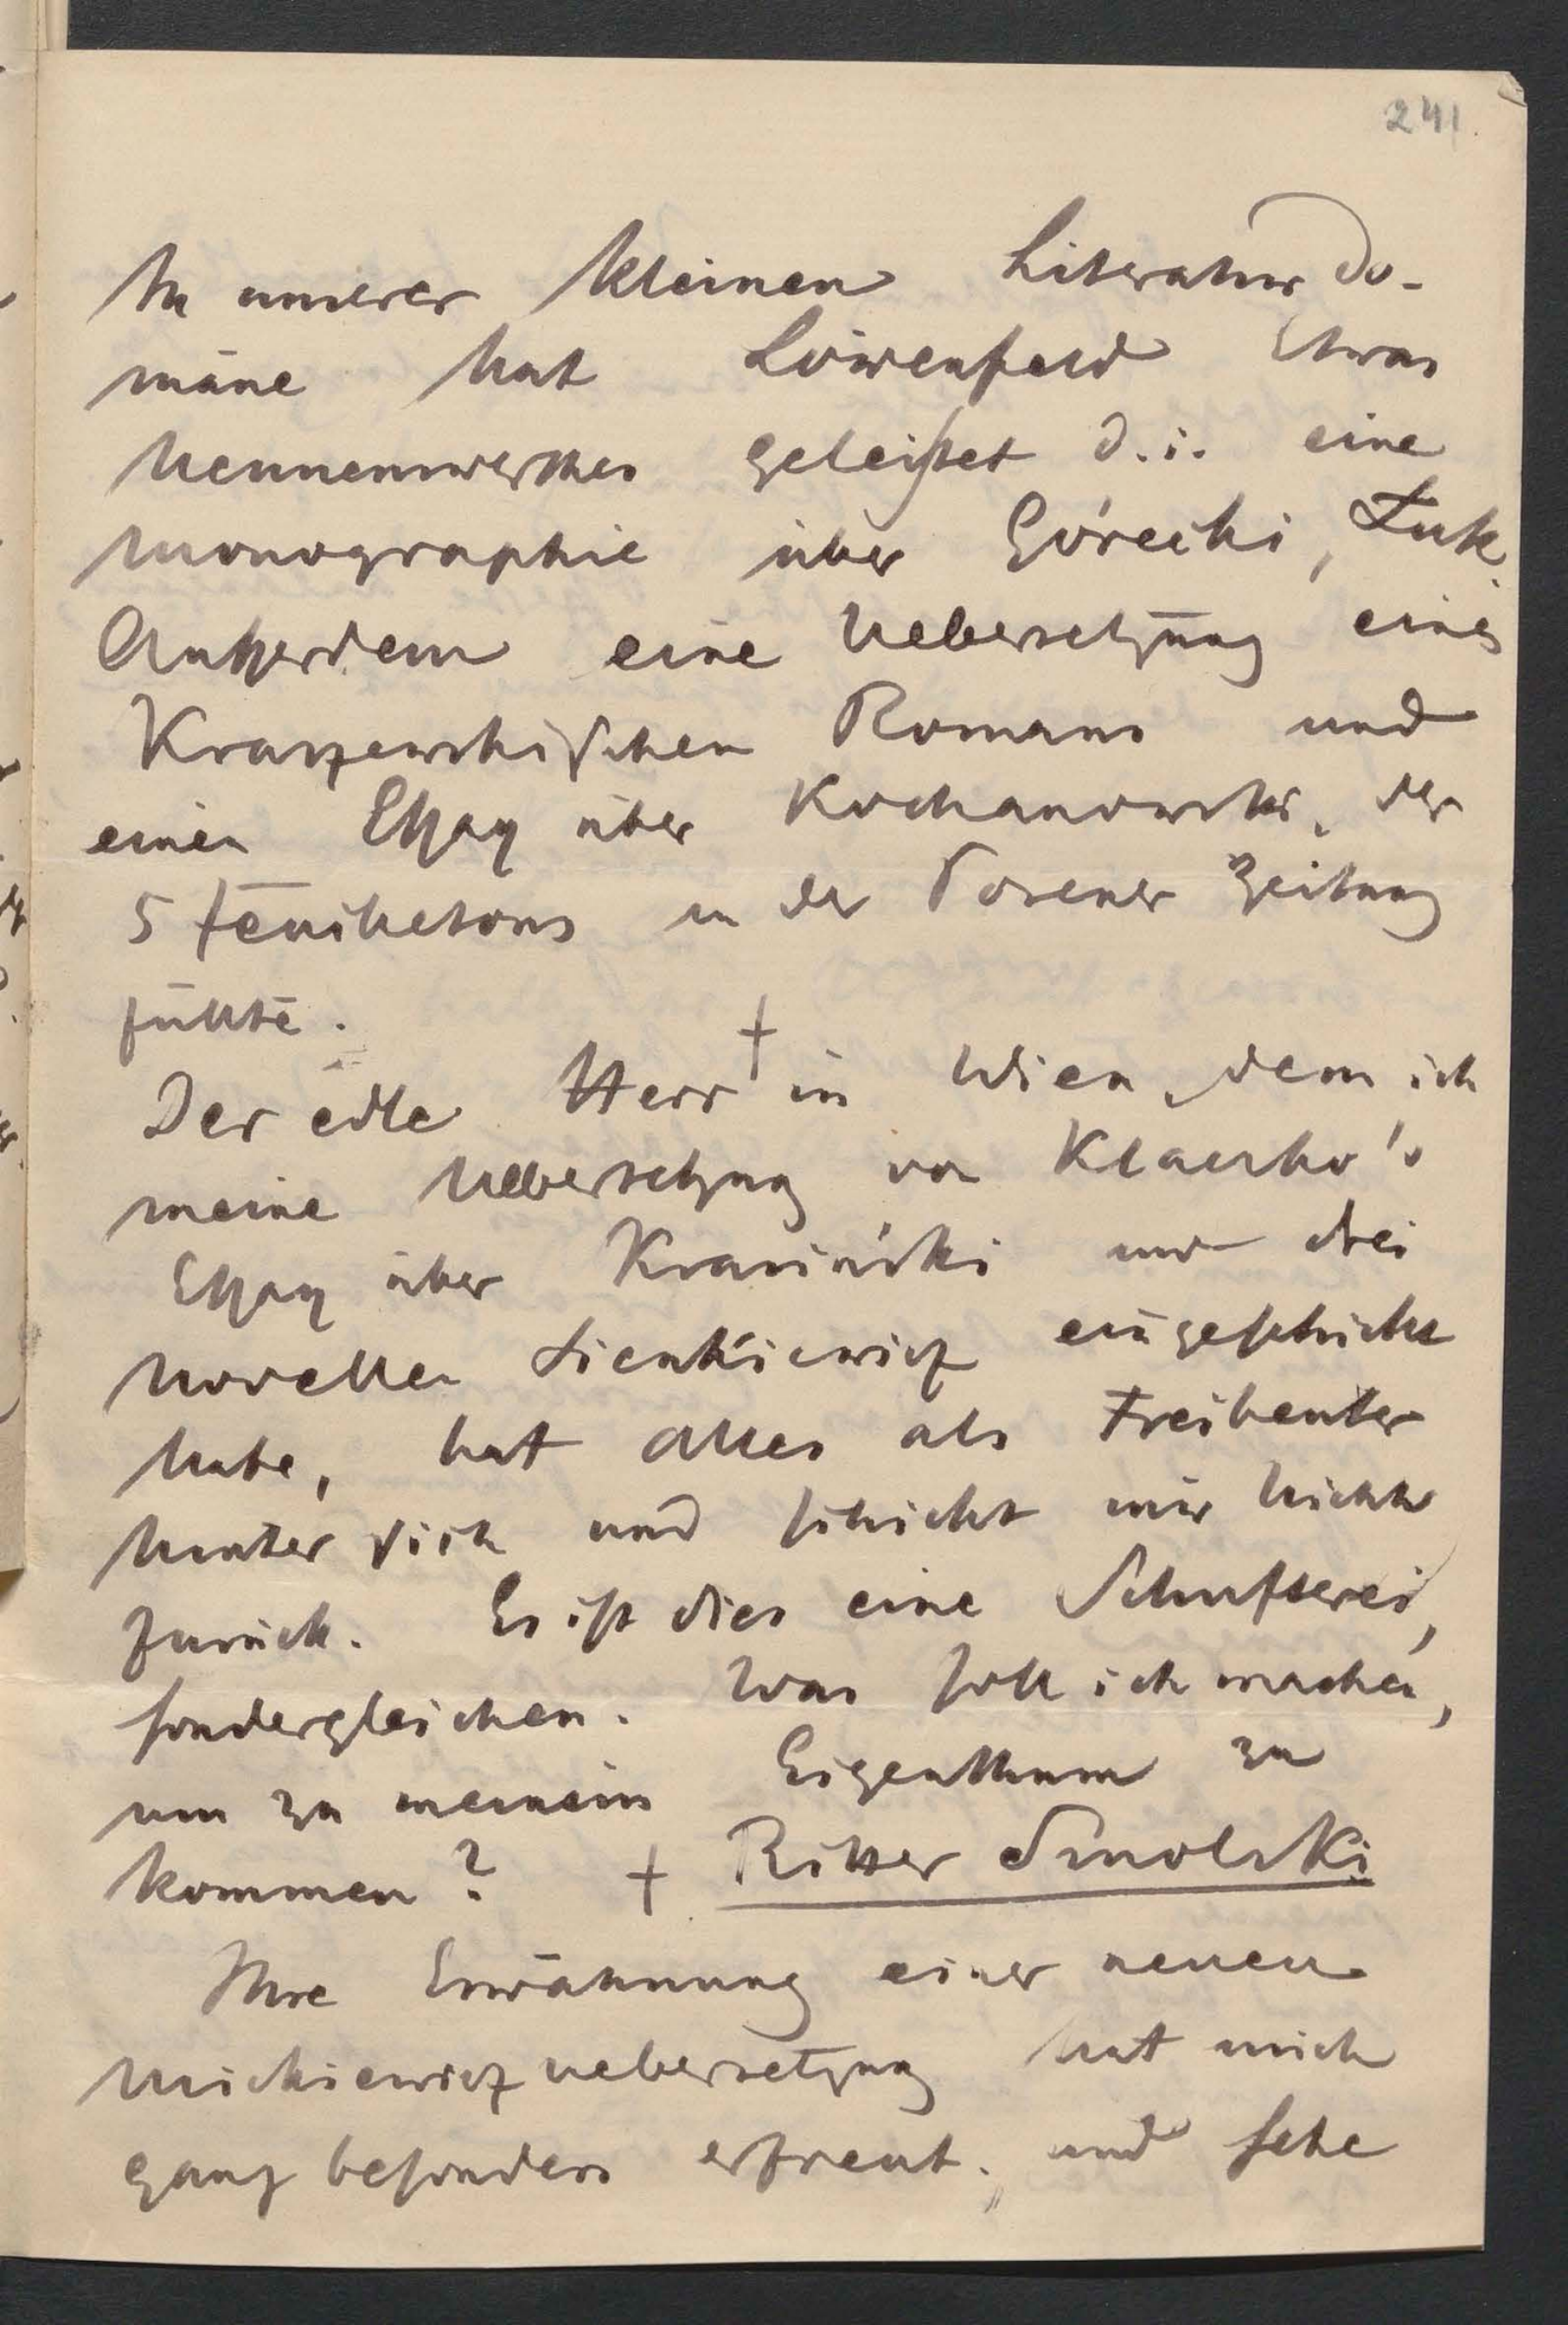 241.
In unserer kleinen Literaturdo-
mäne hat Löwenfeld Etwas
Nennenswerthes geleistet d. i. eine
Monographie über Górecki, Łuk.
Außerdem eine Uebersetzung eines
Kraszewskischen Romans und
einen Essay über Kochanowski, der
5 Feuilletons in der Posener Zeitung
füllte.
Der edle Herr † in Wien, dem ich
meine Uebersetzung von Klaczko's
Essay über Krasiński und drei
Novellen Sienkiewicz eingeschickt
habe, hat Alles als Freibeuter
hinter sich und schickt mir Nichts
zurück. Es ist dies eine Schufterei,
sondergleichen. Was soll ich machen,
um zu meinem Eigenthum zu
kommen? † Ritter Smolski
Ihre Erwähnung einer neuen
Mickiewiczuebersetzung hat mich
ganz besonders erfreut, und sehe